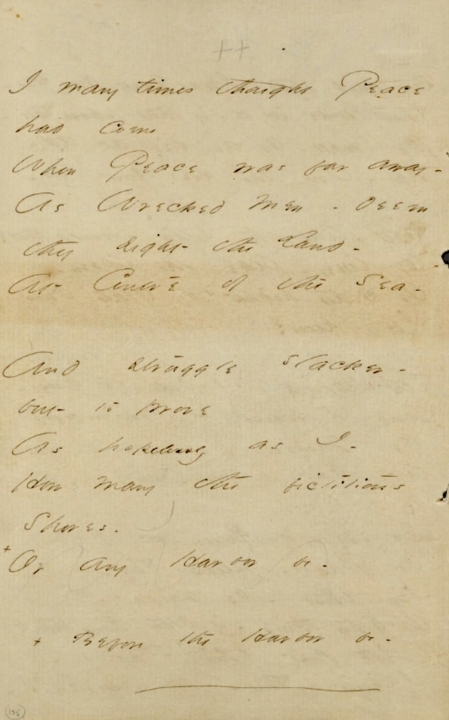 ++
I many times thought Peace
had come
When Peace was far away -
As Wrecked Men - deem
they sight the Land -
At Centre of the Sea -
And struggle slacker -
but to prove
As hopelessly as I -
How many the fictitious
Shores -
+ Or any Harbor be -
+ Before the Harbor be -
135